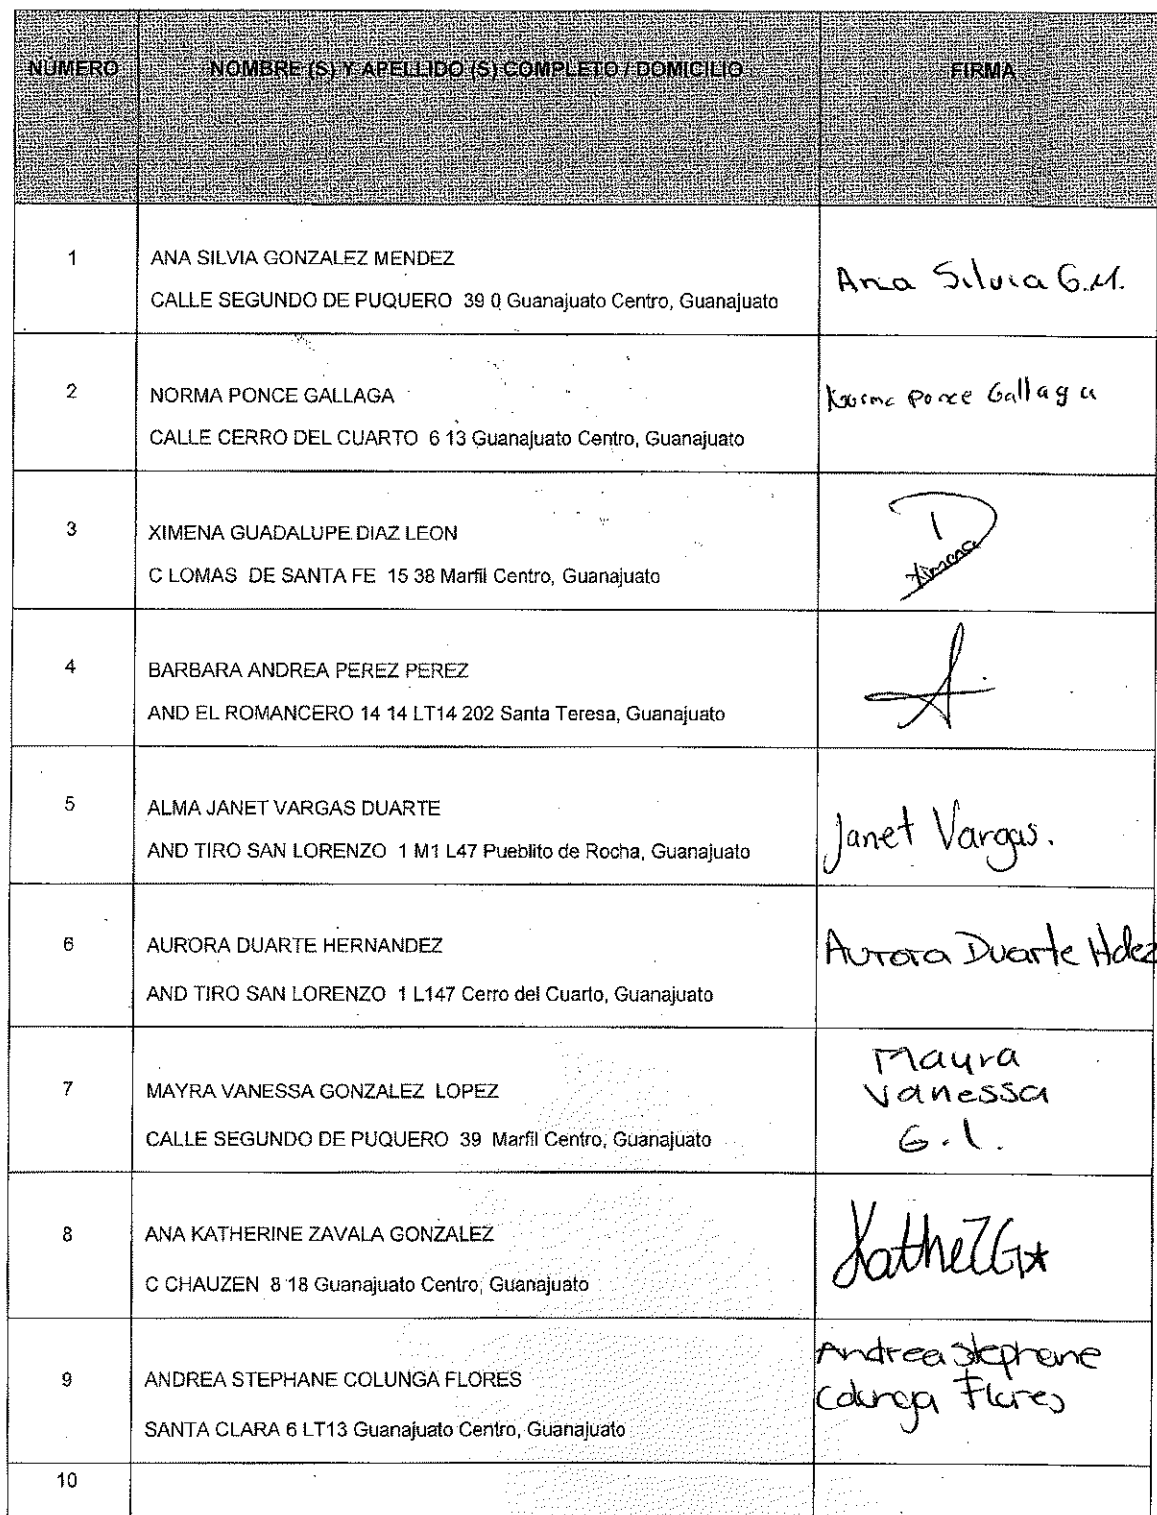 NÚMERO NOMBRE (S) Y APELLIDO (S) COMPLETO / DOMICILIO FIRMA
1 ANA SILVIA GONZALEZ MENDEZ
CALLE SEGUNDO DE PUQUERO 39 0 Guanajuato Centro, Guanajuato
Ana Silvia G.M.
2 NORMA PONCE GALLAGA
CALLE CERRO DEL CUARTO 6 13 Guanajuato Centro, Guanajuato
Norma Ponce Gallaga
3 XIMENA GUADALUPE DIAZ LEON
C LOMAS DE SANTA FE 15 38 Marfil Centro, Guanajuato
Ximena
4 BARBARA ANDREA PEREZ PEREZ
AND EL ROMANCERO 14 14 LT14 202 Santa Teresa, Guanajuato
5 ALMA JANET VARGAS DUARTE
AND TIRO SAN LORENZO 1 M1 L47 Pueblito de Rocha, Guanajuato
Janet Vargas.
6 AURORA DUARTE HERNANDEZ
AND TIRO SAN LORENZO 1 L147 Cerro del Cuarto, Guanajuato
Aurora Duarte Hdez
7 MAYRA VANESSA GONZALEZ LOPEZ
CALLE SEGUNDO DE PUQUERO 39 Marfil Centro, Guanajuato
Mayra
Vanessa
G.l.
8 ANA KATHERINE ZAVALA GONZALEZ
C CHAUZEN 8 18 Guanajuato Centro, Guanajuato
KatheZG
9 ANDREA STEPHANE COLUNGA FLORES
SANTA CLARA 6 LT13 Guanajuato Centro, Guanajuato
Andrea Stephane
Colunga Flores
10